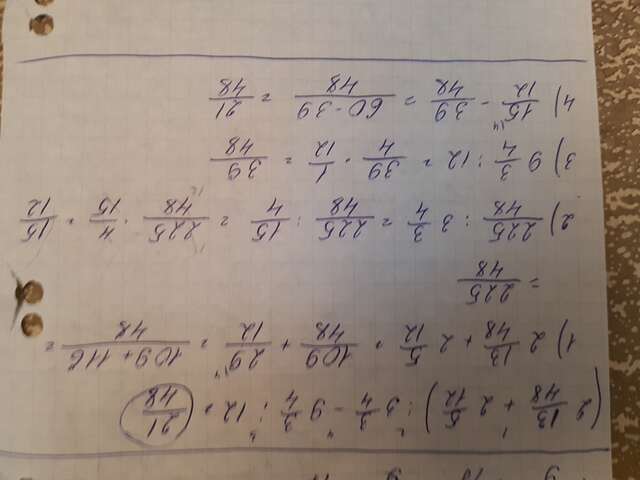 (2 13/48 + 2 5/12) : 3 3/4 - 9 3/4 : 12 = 21/48
1) 2 13/48 + 2 5/12 = 109/48 + 29/12 = 109 + 116/48 =
= 225/48
2) 225/48 : 3 3/4 = 225/48 : 15/4 = 225/48 · 4/15 = 15/12
3) 9 3/4 : 12 = 39/4 · 1/12 = 39/48
4) 15/12 - 39/48 = 60 - 39/48 = 21/48